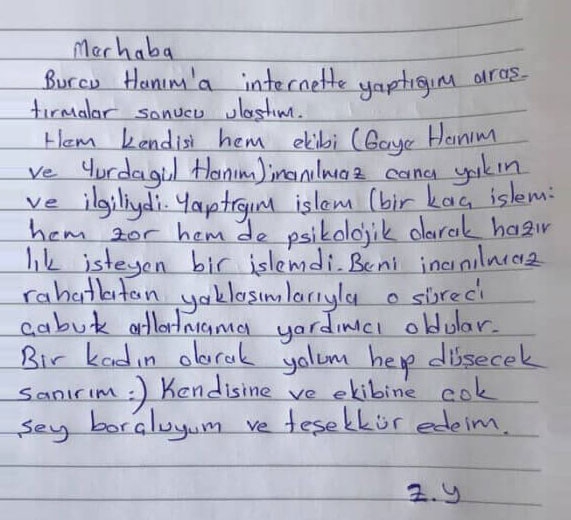 Merhaba
Burcu Hanım'a internette yaptığım araş-
tırmalar sonucu ulaştım.
Hem kendisi hem ekibi (Gaye Hanım
ve Yurdagül Hanım) inanılmaz cana yakın
ve ilgiliydi. Yaptığım işlem (bir kaç işlem:
hem zor hem de psikolojik olarak hazır
lık isteyen bir işlemdi. Beni inanılmaz
rahatlatan yaklaşımlarıyla o süreci
çabuk atlatmama yardımcı oldular.
Bir kadın olarak yolum hep düşecek
sanırım :) Kendisine ve ekibine çok
şey borçluyum ve teşekkür edeim.
Z.Y